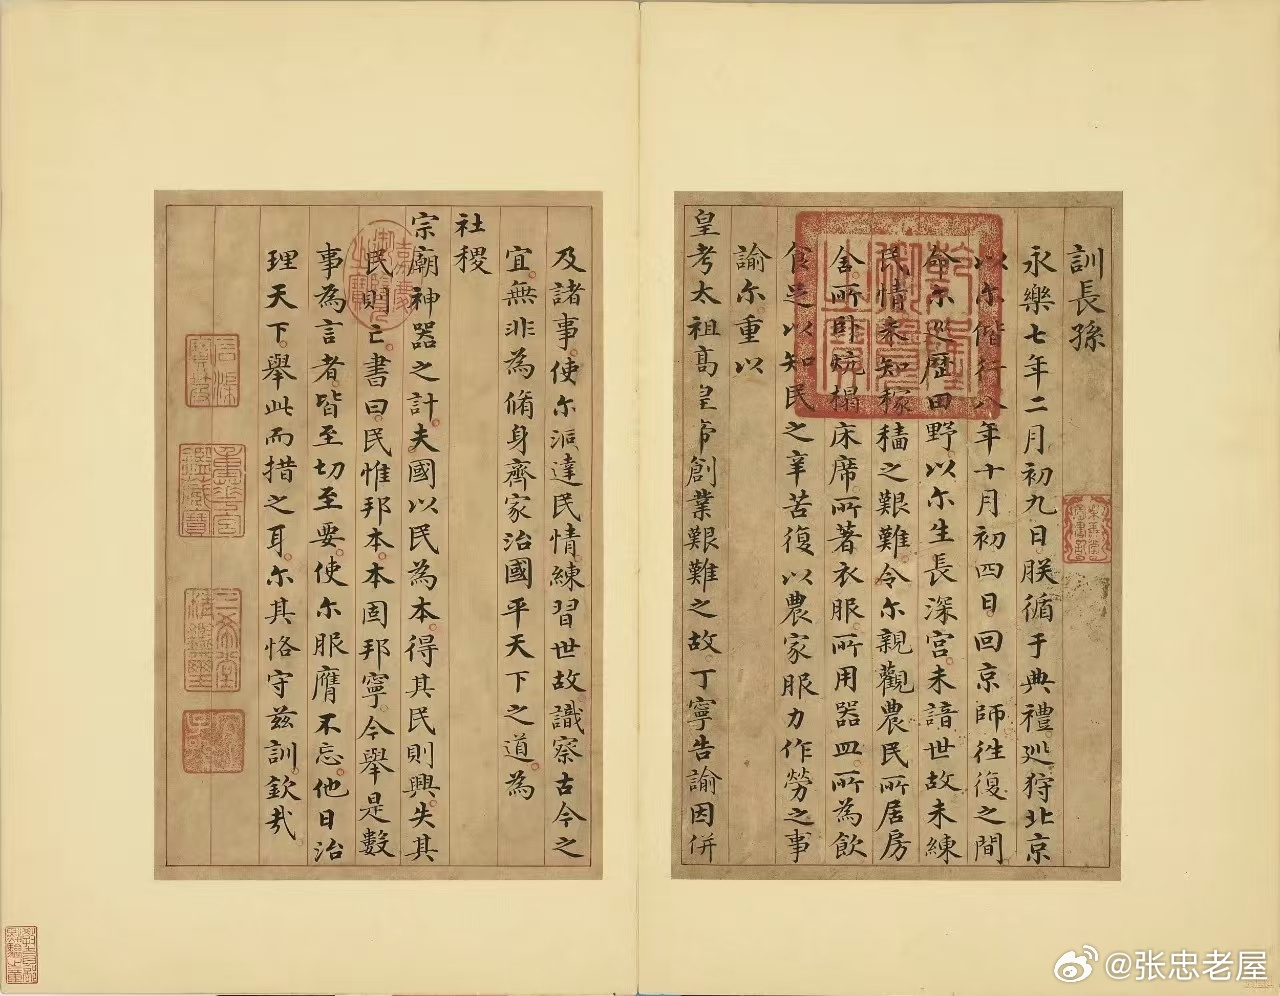 訓長孫
永樂七年二月初九日。朕循于典禮巡狩北京
以尔偕行。八年十月初四日。回京師。往復之間
命尔巡歷田野。以尔生長深宮。未諳世故。未練
民情。未知稼穡之艱難。令尔親觀農民所居房
舍。所卧炕榻床席。所著衣服。所用器皿。所為飲
食。足以知民之辛苦。復以農家服力作勞之事
諭尔。重以
皇考太祖高皇帝創業艱難之故。丁寧告諭。因併
及諸事。使尔洞達民情。練習世故。識察古今之
宜。無非為脩身齊家治國平天下之道。為
社稷
宗廟神器之計。夫國以民為本。得其民則興。失其
民則亡。書曰。民惟邦本。本固邦寧。今舉是數
事為言者。皆至切至要。使尔服膺不忘。他日治
理天下。舉此而措之耳。尔其恪守茲訓。欽哉。
乾隆御覽之寶
嘉慶御覽之寶
石渠寶笈
重華宮鑑藏寶
三希堂精鑑璽
宜子孫
@张忠老屋